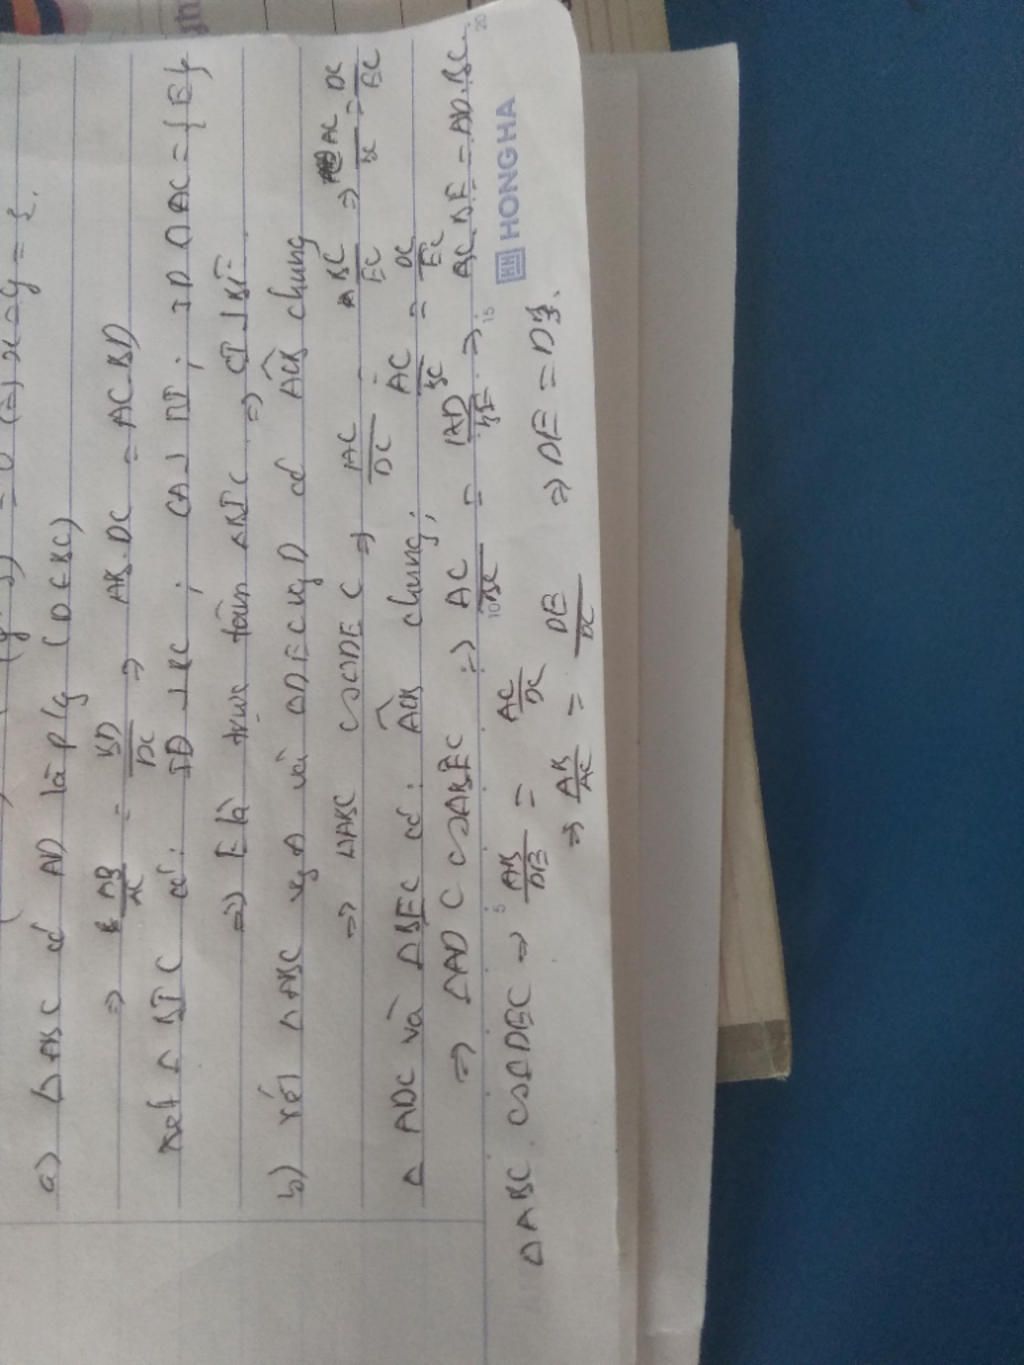 a) Δ ABC có AD là p/g (D ∈ BC)
⇒ AB/AC = BD/DC ⇒ AB.DC = AC.BD
xét Δ BIC có: ID ⊥ BC ; CA ⊥ BI ; ID ∩ AC = {E}
⇒ E là trực tâm ΔBIC ⇒ CI ⊥ BE
b) xét Δ ABC vg A và ΔDEC vg D có ACB chung
⇒ ΔABC ∽ ΔDEC ⇒ AC/DC = BC/EC ⇒ AC/BC = DC/EC
Δ ADC và ΔBEC có: ACB chung; AC/BC = DC/EC
⇒ ΔADC ∽ ΔBEC ⇒ AC/BC = AD/BE ⇒ AC.BE = AD.BC
HONG HA
5 10 15 20
ΔABC ∽ ΔDEC ⇒ AB/DE = AC/DC
⇒ AB/AC = DE/DC ⇒ DE = DB.